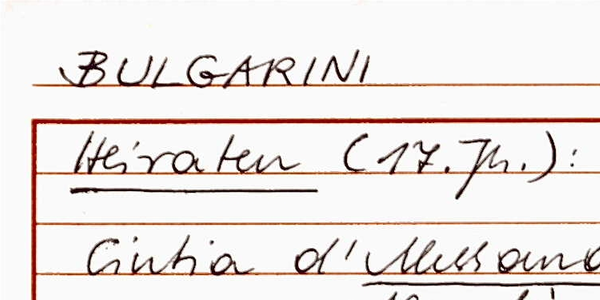 BULGARINI
Heiraten (17. Jh.):
Cintia d'Alessand